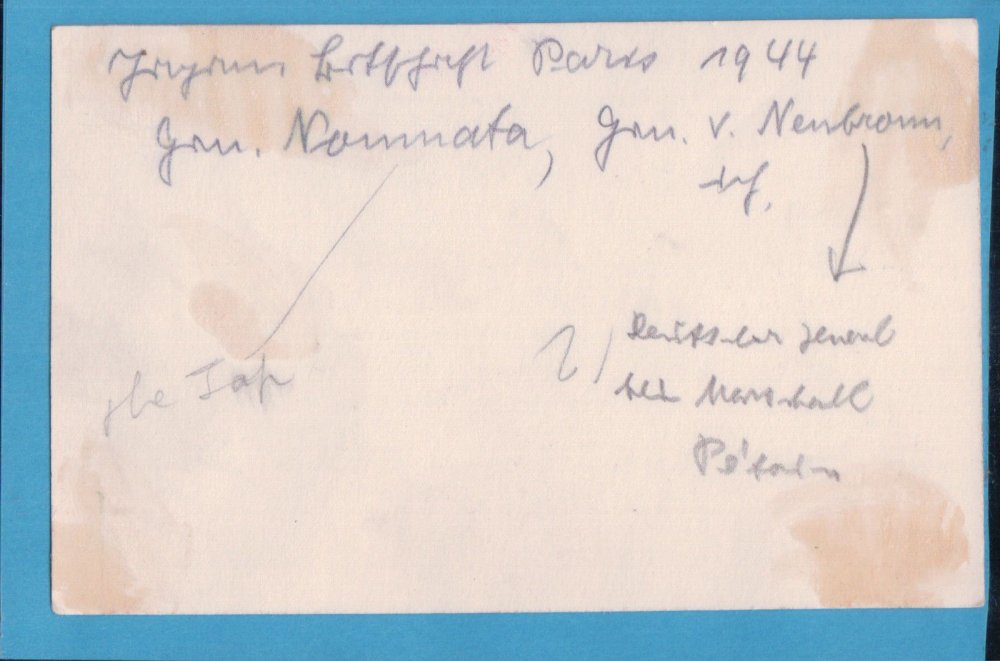 Japan. Botschaft Paris 1944
Gen. Nommata, Gen. v. Neubronn,
ich.
Jap
Deutscher General
bei Marschall
Pétain